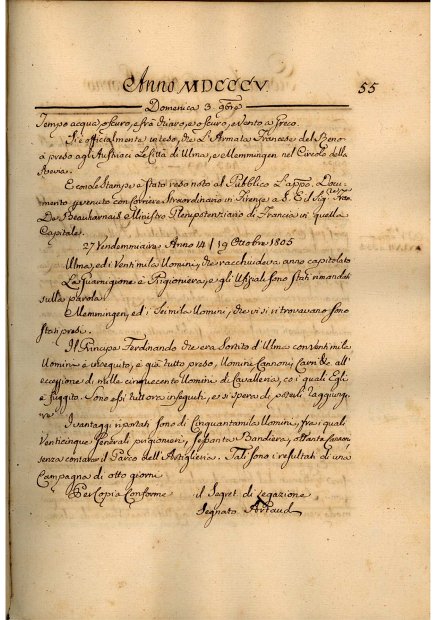 Anno MDCCCV.
55
Domenica 3. 9bre
Tempo acqua, oscuro, e frà chiaro, e oscuro, e vento a Greco.
Si è officialmente inteso, che L'Armata Francese del Reno
à preso agli Austriaci Le Città di Ulma, e Memmingen nel Circolo della
Svevia.
E con le Stampe è stato reso noto al Pubblico L'appo. Docu-
mento pervenuto con Corriere Straordinario in Firenze a S. E. il Sig.
De Beauharnais Ministro Plenipotenziario di Francia in quella
Capitale.
27 Vendemmiaire Anno 14 / 19 Ottobre 1805
Ulma, ed i Ventimila Uomini, che racchiudeva anno capitolato
La Guarnigione è Prigioniera, e gli Uffiziali sono stati rimandati
sulla parola.
Memmingen, ed i Seimila Uomini, che vi si ritrovavano sono
stati presi.
Il Principe Ferdinando che era sortito d'Ulma con Ventimila
Uomini è inseguito, e già tutto preso, Uomini, Cannoni, Carri &c. all'
eccezione di mille cinquecento Uomini di Cavalleria, co i quali Egli
è fuggito. Sono essi tuttora inseguiti, e si spera di poterli raggiunge-
re.
I vantaggi riportati sono di Cinquantamila Uomini, fra i quali
Venticinque Generali prigionieri, sessanta Bandiere, ottanta Cannoni
senza contare il Parco dell'Artiglieria. Tali sono i resultati di una
Campagna di otto giorni.
Per Copia Conforme il Segret. di Legazione
Segnato Artaud